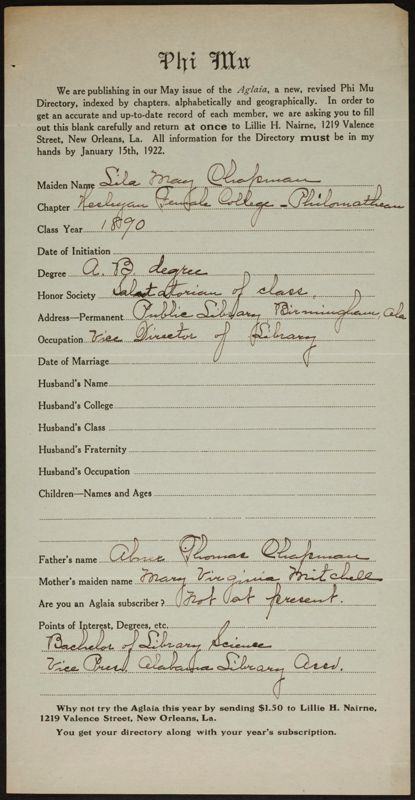 Phi Mu
We are publishing in our May issue of the Aglaia, a new, revised Phi Mu
Directory, indexed by chapters, alphabetically and geographically. In order to
get an accurate and up-to-date record of each member, we are asking you to fill
out this blank carefully and return at once to Lillie H. Nairne, 1219 Valence
Street, New Orleans, La. All information for the Directory must be in my
hands by January 15th, 1922.
Maiden Name Lila May Chapman
Chapter Wesleyan Female College - Philomathean
Class Year 1890
Date of Initiation
Degree A. B. degree
Honor Society Salutatorian of class,
Address—Permanent Public Library, Birmingham, Ala
Occupation Vice Director of Library
Date of Marriage
Husband's Name
Husband's College
Husband's Class
Husband's Fraternity
Husband's Occupation
Children—Names and Ages
Father's name Thomas Chapman
Mother's maiden name Mary Virginia Mitchell
Are you an Aglaia subscriber? Not at present.
Points of Interest, Degrees, etc.
Bachelor of Library Science
Vice Pres. Alabama Library Assn.
Why not try the Aglaia this year by sending $1.50 to Lillie H. Nairne,
1219 Valence Street, New Orleans, La.
You get your directory along with your year's subscription.